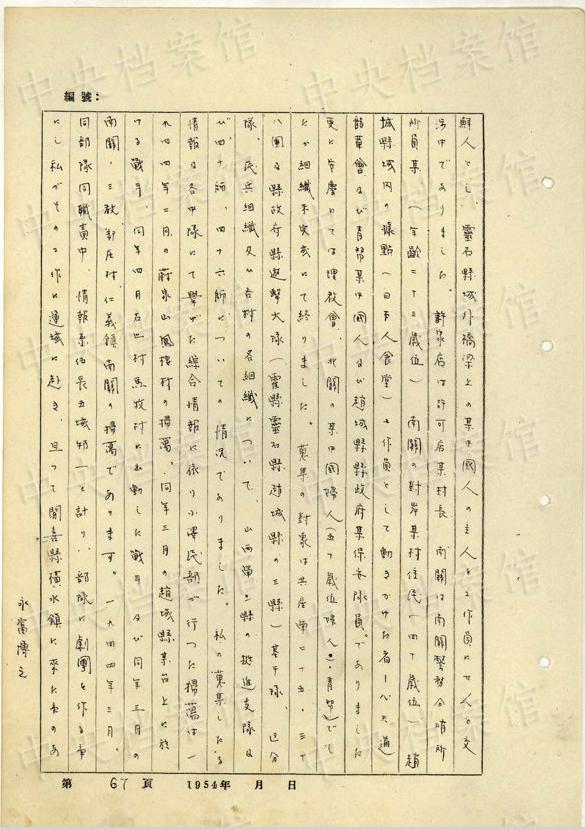 編號：
鮮人とし、靈石縣城外橋梁上の某中國人の主人を工作員にせんと交
渉中でありました。許家店は許可店某村長 南關は南關警務分哨所
所員某（年齡二十三歲位）南關の對岸某村住民（四十歲位）趙
城縣城内の據點（日本人食堂）工作員として働きかけた者一人
龍華會及び青幇某中國人及び趙城縣縣政府某保安隊員。でありました
更に安慶にては理教會、北關の某中國婦人（五十歲位婦人・青幇）でし
たが組織未完成にて終りました。蒐集の對象は共產軍二十五、三十
八團及縣政府縣遊擊大隊（霍縣靈石縣趙城縣の三縣）基干隊、區分
隊、民兵組織及び各村の各組織について、山西軍
び四十師、四十六師についての情況でありました。私の蒐集したる
情報及各中隊にて擧げた綜合情報に依り小澤民部が行つた掃蕩は一
九四四年二月の蔣泉山風樓村の掃蕩。同年三月の趙城縣某台上に於
ける戰斗、同年四月石必村馬牧村に出動した戰斗及び同年三月の
南關、三教、郭庄村、仁義鎮南關の掃蕩であります。一九四四年三月、
同部隊同職責中、情報系伍長五城邦一と計り、部隊に劇團を作る事
にし私がその工作に運城に赴き、且つて聞喜縣橫水鎮に來たものあ
永富博之
第 67 頁 1954年 月 日
中央档案馆